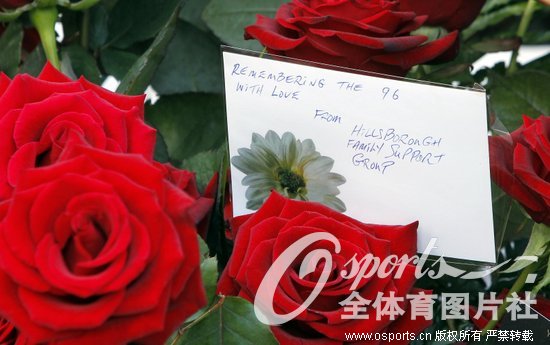 REMEMBERING THE 96
WITH LOVE
FROM
HILLSBOROUGH
FAMILY SUPPORT
GROUP
Osports
全体育图片社
www.osports.cn 版权所有 严禁转载